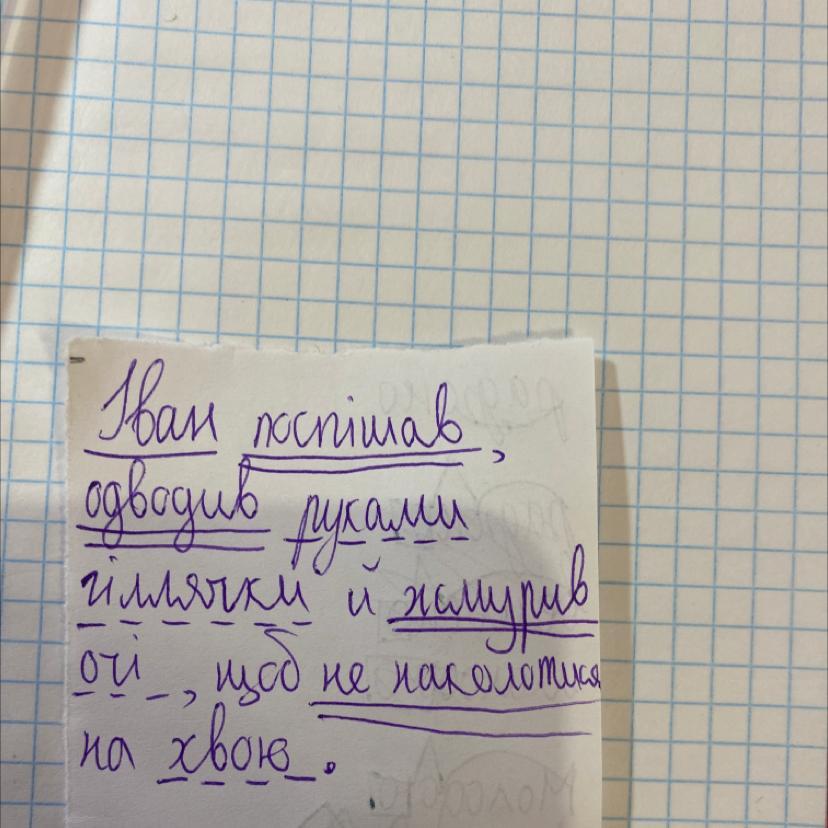 Іван поспішав,
одводив руками
гіллячки й жмурив
очі, щоб не наколотися
на хвою.